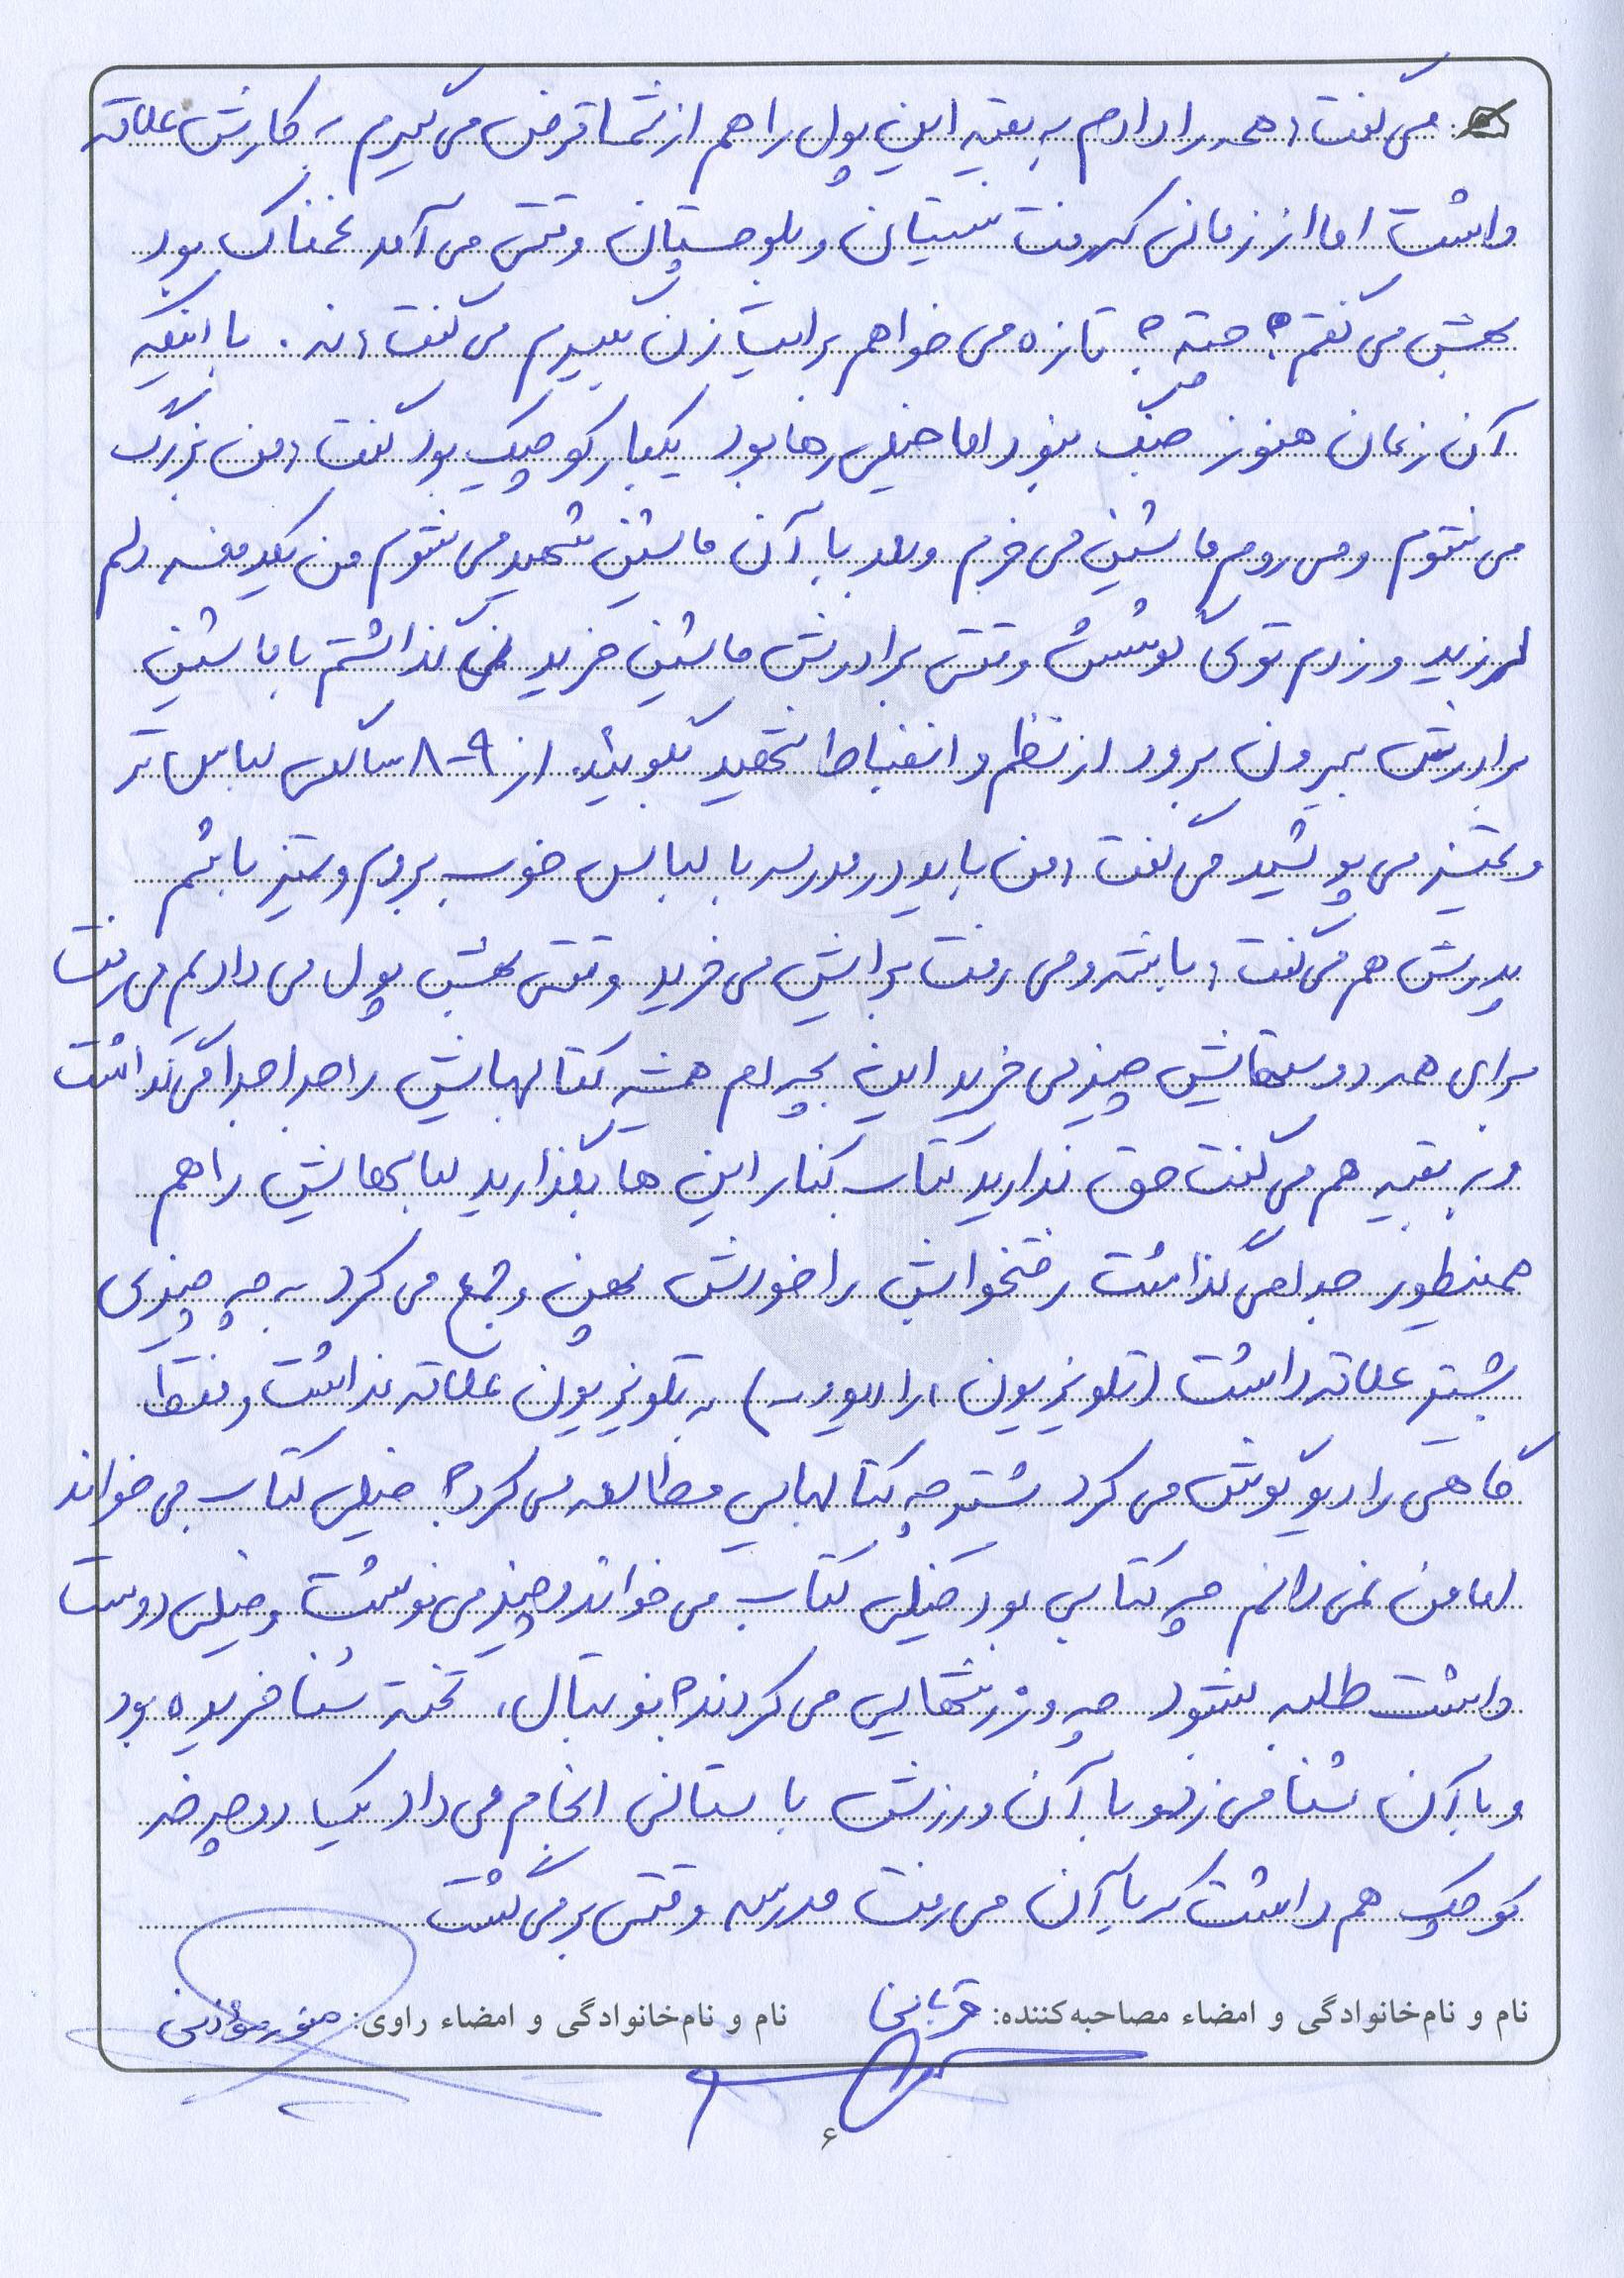 می گفت: همه را دادم به بقیه این پول را هم از شما قرض می گیرم به کارش علاقه
داشت اما از زمانی که رفت سیستان و بلوچستان وقتی می آمد غمناک بود
بهش می گفتم؟ چیته؟ تازه می خواهم برایت زن بگیرم می گفت: نه. با اینکه
آن زمان هنوز جنگ نبود اما خیلی رها بود یکبار کوچیک بود گفت: من بزرگ
می شوم و می روم ماشین می خرم و بعد با آن ماشین شهید می شوم من یکدفعه دلم
لرزید و زدم توی گوشش وقتی برادرش ماشین خرید نمی گذاشتم با ماشین
برادرش بیرون برود از نظم و انضباط شهید بگویید. از ۹-۸ سالگی لباس تر
و تمیز می پوشید می گفت: من باید در مدرسه با لباس خوب بروم و تمیز باشم
پدرش هم می گفت: باشه و می رفت برایش می خرید وقتی بهش پول می دادیم می رفت
برای همه دوستهایش چیز می خرید این بچه ام همیشه کتابهایش را جدا جدا می گذاشت
و به بقیه هم می گفت حق ندارید کتاب کنار این ها بگذارید لباسهایش را هم
همینطور جدا می گذاشت رختخوابش را خودش پهن و جمع می کرد به چه چیزی
بیشتر علاقه داشت (تلویزیون، رادیو و ...) به تلویزیون علاقه نداشت و فقط
گاهی رادیو گوش می کرد بیشتر چه کتابهایی مطالعه می کرد؟ خیلی کتاب می خواند
اما من نمی دانم چه کتابی بود خیلی کتاب می خواند و چیز می نوشت و خیلی دوست
داشت طلبه بشود چه ورزشهایی می کردند؟ فوتبال، تخته شنا خریده بود
و با آن شنا می زد و با آن ورزش باستانی انجام می داد یک دوچرخه
کوچک هم داشت که با آن می رفت مدرسه وقتی برمی گشت
نام و نام‌خانوادگی و امضاء مصاحبه‌کننده: قربانی نام و نام‌خانوادگی و امضاء راوی: منور مؤذنی
۶